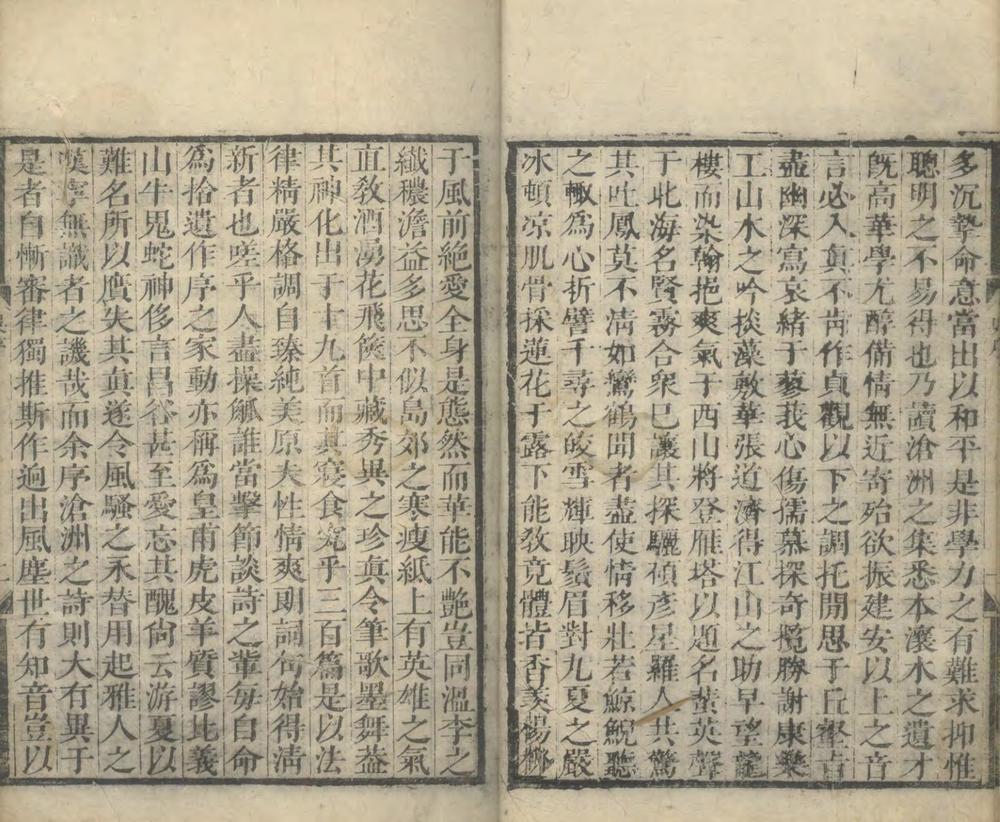 多沉摯命意當出以和平是非學力之有難求抑惟
聰明之不易得也乃讀滄洲之集悉本瀼水之遺才
旣高華學尤醇備情無近寄殆欲振建安以上之音
言必入眞不肯作貞觀以下之調托閒思于丘壑言
盡幽深寫哀緒于蓼莪心傷孺慕探奇攬勝謝康樂
工山水之吟掞藻敷華張道濟得江山之助早望龍
樓而染翰挹爽氣于西山將登雁塔以題名蜚英聲
于北海名賢霧合衆已讓其探驪碩彥星羅人共驚
其吐鳳莫不淸如鸞鶴聞者盡使情移壯若鯨鯢聽
之輙爲心折譬千尋之皎雪輝映鬚眉對九夏之嚴
冰頓凉肌骨採蓮花于露下能敎竟體皆香美楊柳
于風前絶愛全身是態然而華能不艷豈同溫李之
纖穠澹益多思不似島郊之寒瘦紙上有英雄之氣
直敎酒湧花飛篋中藏秀異之珍眞令筆歌墨舞葢
其神化出于十九首而其寢食究乎三百篇是以法
律精嚴格調自臻純美原夫性情爽則詞句始得淸
新者也嗟乎人盡操觚誰當擊節談詩之輩每自命
爲拾遺作序之家動亦稱爲皇甫虎皮羊質謬比義
山牛鬼蛇神侈言昌谷甚至愛忘其醜尙云游夏以
難名所以贋失其眞遂令風騷之永替用起雅人之
嘆寧無識者之譏哉而余序滄洲之詩則大有異于
是者自慚審律獨推斯作迥出風塵世有知音豈以